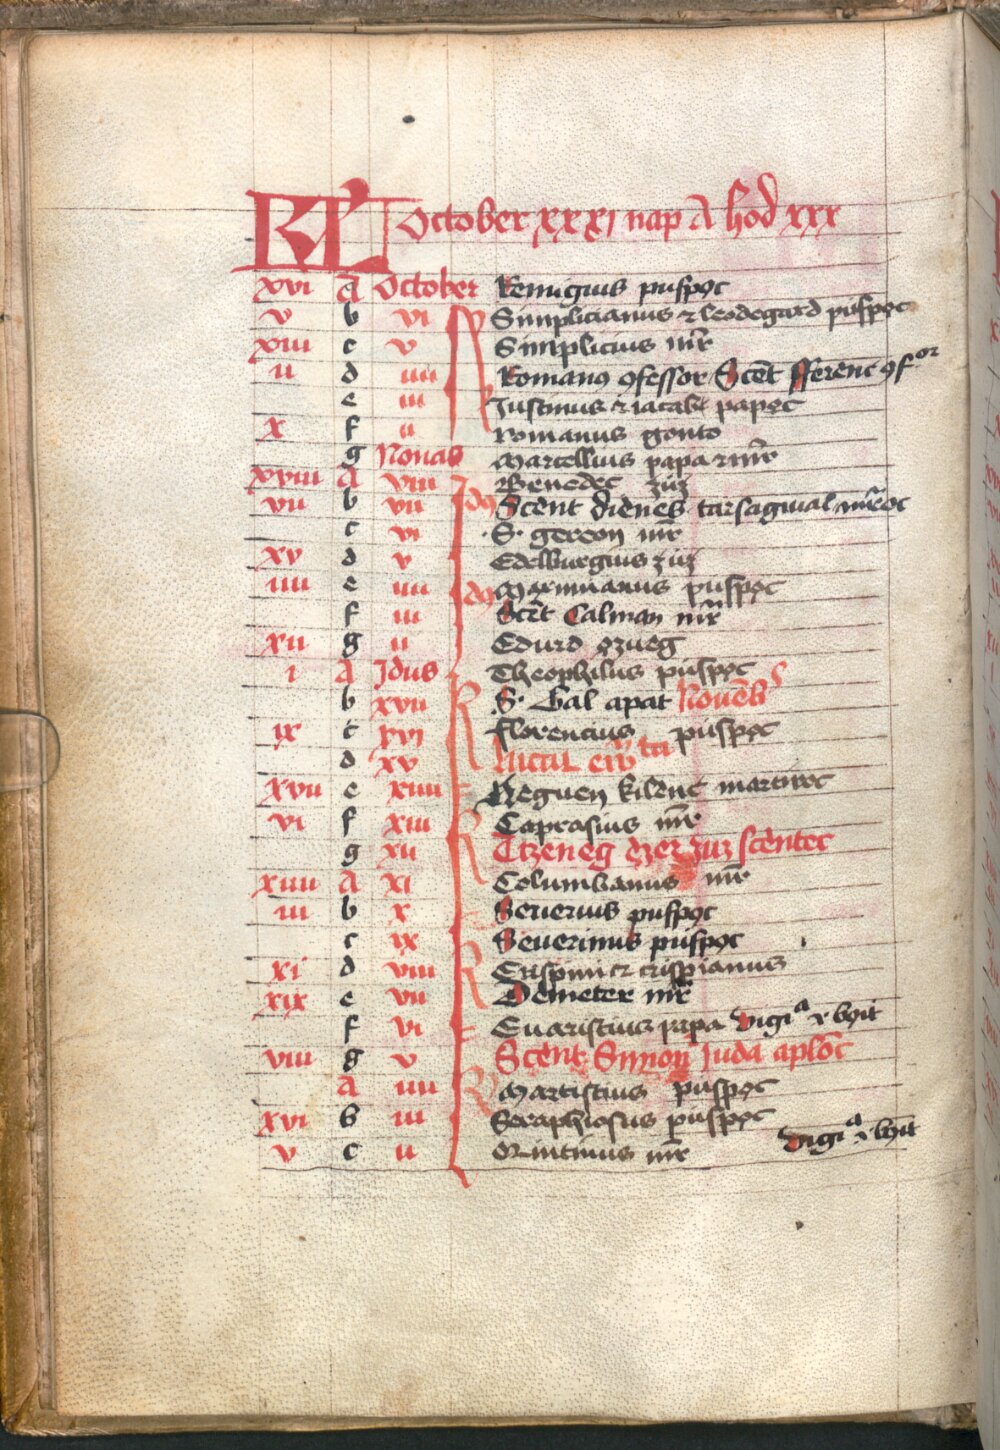 KL October xxxi nap A hod xxx
xvi A October Remigius puspoc
v b vi Simplicianus & leodegard puspoc
xiii c v Simplicius mr
ii d iiii Romanus ꝯfessor Scent fferenc ꝯfor
e iii Justinus & iacab papoc
x f ii Romanus gonto
g Nonas Marcellius papa & mr
xviii A viii Benedec zuz
vii b vii Scent dienes tarsagiual mroc
c vi S. gereon mr
xv d v Edelburgius zuz
iiii e iiii Maximianus puspoc
f iii Scent Calman mr
xii g ii Eduard ozueg
i A Idus Theophilus puspoc
b xvii S. Gal apat Nouēb
ix c xvi florencius puspoc
d xv
xvii e xiiii Neguen kilenc martiroc
vi f xiii Caprasius mr
g xii Tizeneg ezer zuz scentec
xiiii A xi Columbanus mr
iii b x Seuerius puspoc
c ix Seuerinus puspoc
xi d viii Crispini & crispianus
xix e vii Demeter mr
f vi Euaristius papa vigia & boit
viii g v Scent Simon Juda aplōc
A iiii Martistius puspoc
xvi b iii Seraphiosus puspoc
v c ii Quintinus mr vigia & boit